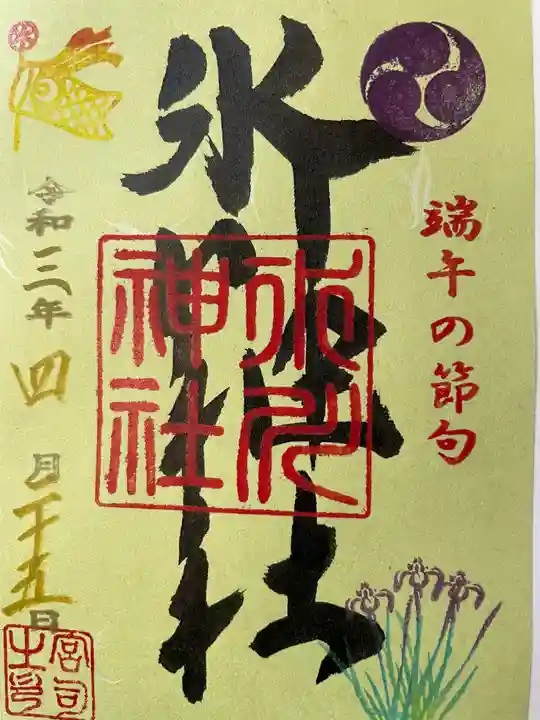 端午の節句
氷川神社
氷川
神社
令和三年四月二十五日
宮司
之印